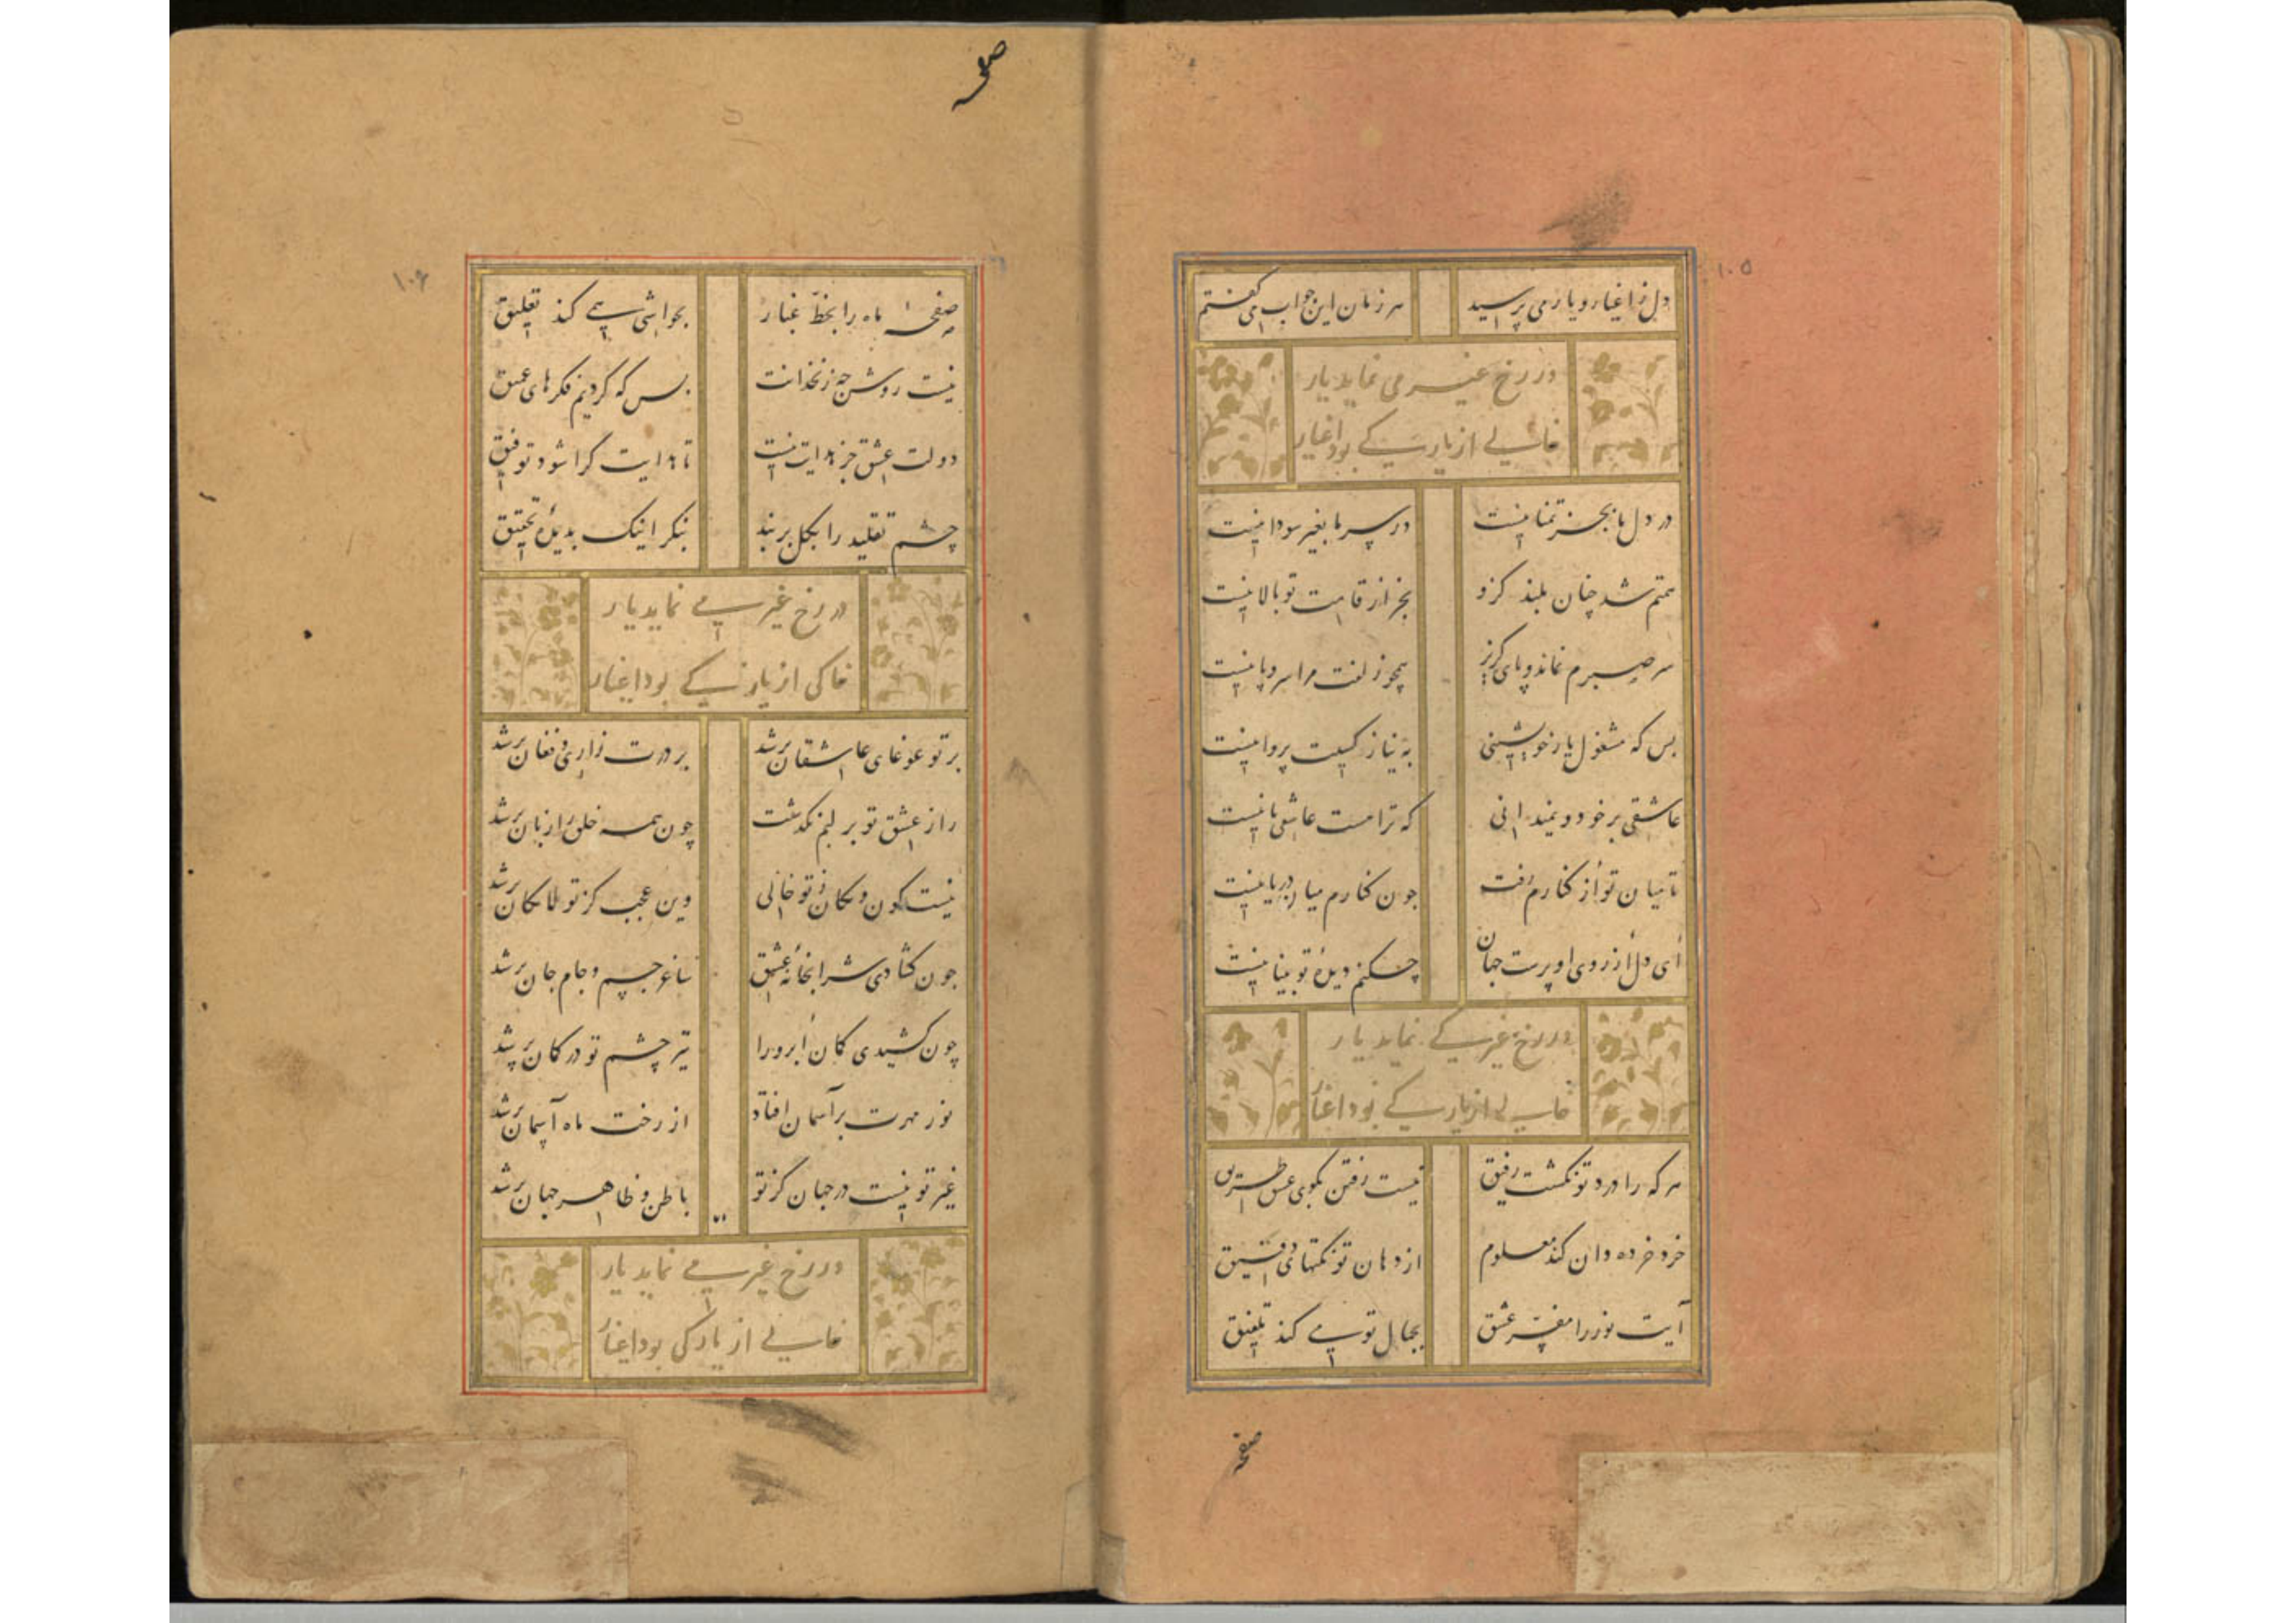 ۱۰۵
دل ز اغیار و یار می پرسید هر زمان این جواب می گفتم
در رخ غیر می نماید یار
خالی از یار کی بود اغیار
در دل ما بجز تمنا نیست در سر ما بغیر سودا نیست
همتم شد چنان بلند کزو بجز از قامت تو بالا نیست
سر صبرم نماند و پای گریز همچو زلفت مرا سر و پا نیست
بس که مشغول یار خویشتنی به نیاز کسیت پروا نیست
عاشقی بر خود و نمیدانی که ترا هست عاشقی یا نیست
تا میان تو از کنارم رفت چون کنارم میان دریا نیست
ای دل از روی او پرست جهان چکنم دیدهٔ تو بینا نیست
در رخ غیر می نماید یار
خالی از یار کی بود اغیار
هر که را درد تو نگشت رفیق نیست رفتن بکوی عشق طریق
خرد خرده دان کند معلوم از دهان تو نکتهای دقیق
آیت نور را مفسر عشق بجمال تو می کند تلفیق
صفحه
۱۰۶
صفحهٔ ماه را بخط غبار بحواشی همی کند تعلیق
نیست روشن چه زنخدانت بس که کردیم فکرهای عمیق
دولت عشق جز هدایت نیست تا هدایت کرا شود توفیق
چشم تقلید را بکل بربند بنگر اینک بدیدهٔ تحقیق
در رخ غیر می نماید یار
خالی از یار کی بود اغیار
بر تو غوغای عاشقان برشد بر درت زاری و فغان برشد
راز عشق تو بر لبم نگذشت چون همه خلق را زبان برشد
نیست کون و مکان ز تو خالی وین عجب کز تو لامکان برشد
چون گشادی شرابخانهٔ عشق ساغر جسم و جام جان برشد
چون کشیدی کمان ابرو را تیر چشم تو در کمان برشد
نور مهرت بر آسمان افتاد از رخت ماه آسمان برشد
غیر تو نیست در جهان کز تو باطن و ظاهر جهان برشد
در رخ غیر می نماید یار
خالی از یار کی بود اغیار